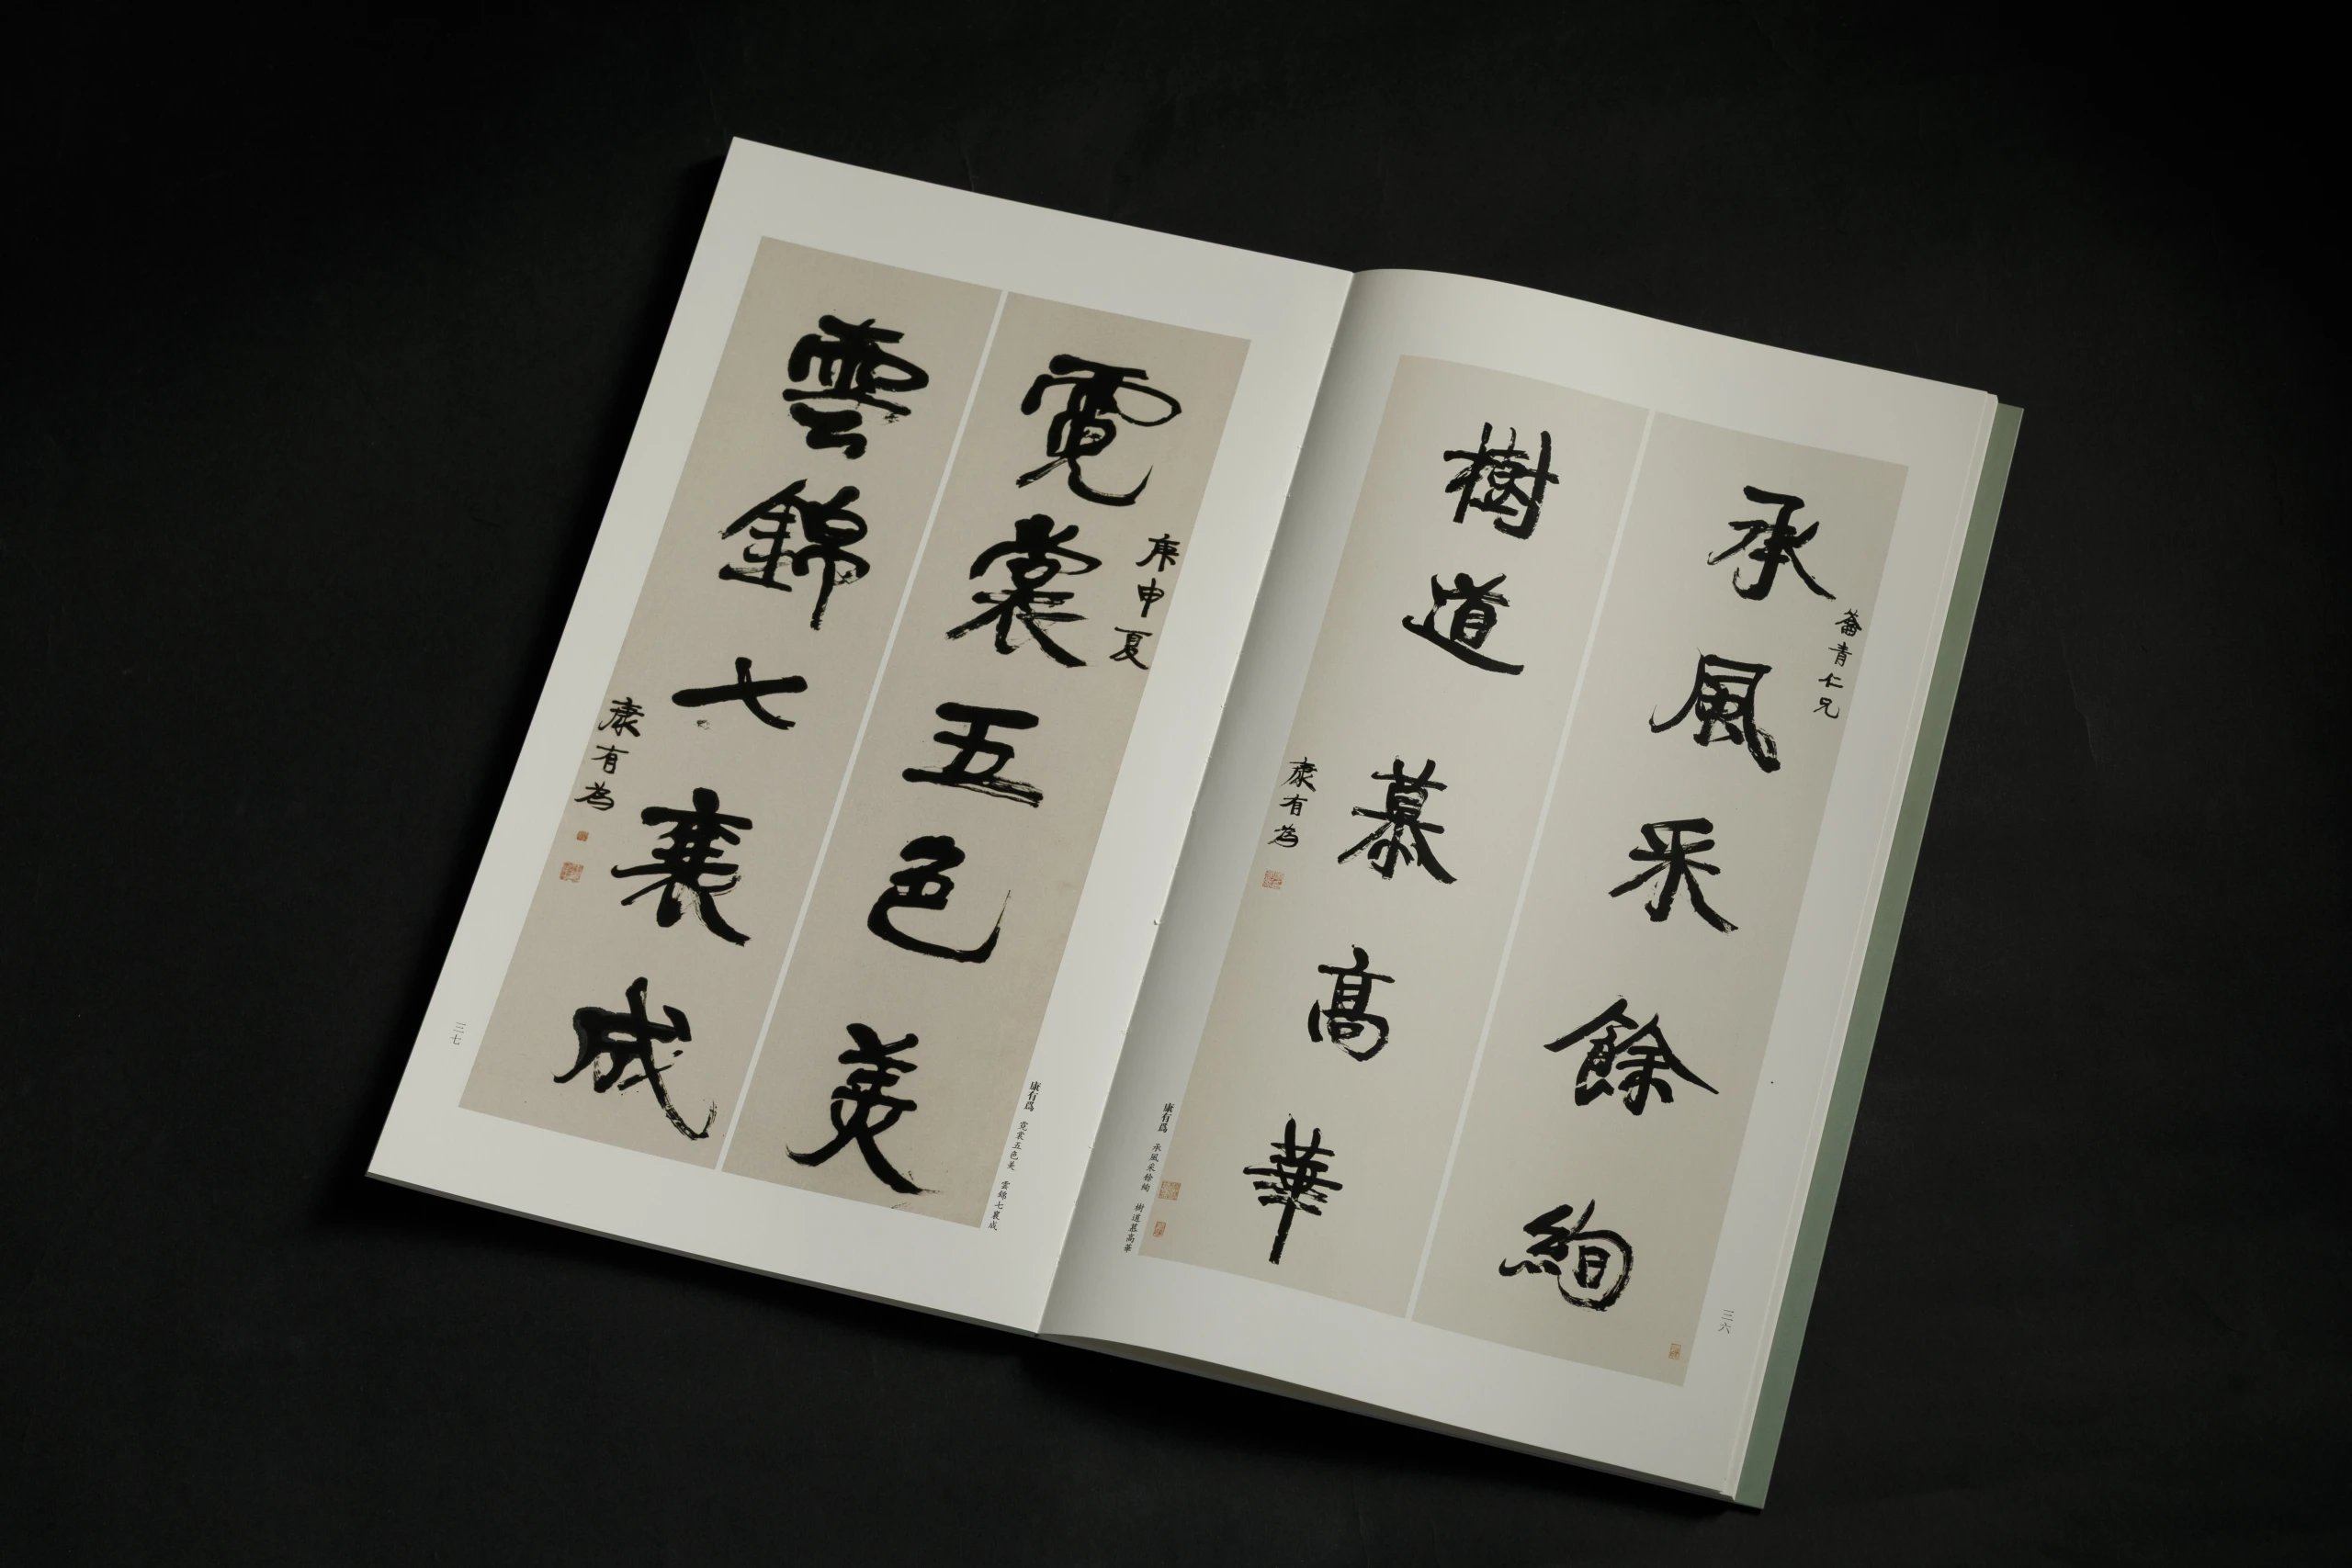 承風采餘絢
籥青仁兄
樹道慕高華
康有為
康有爲　承風采餘絢　樹道慕高華
三六
庚申夏
霓裳五色美
雲錦七襄成
康有為
康有爲　霓裳五色美　雲錦七襄成
三七